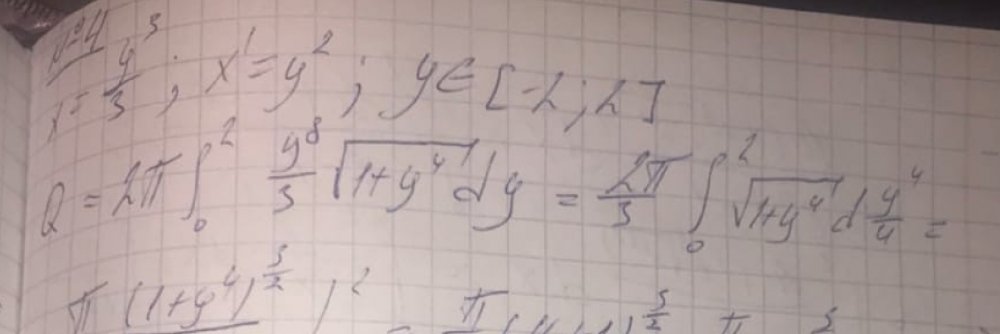 №4
x = y³/3 ; x' = y² ; y ∈ [-2; 2]
Q = 2π ∫₀² y³/3 √(1+y⁴) dy = 2π/3 ∫₀² √(1+y⁴) d y⁴/4 =
π (1+y⁴)^(3/2) |² = π